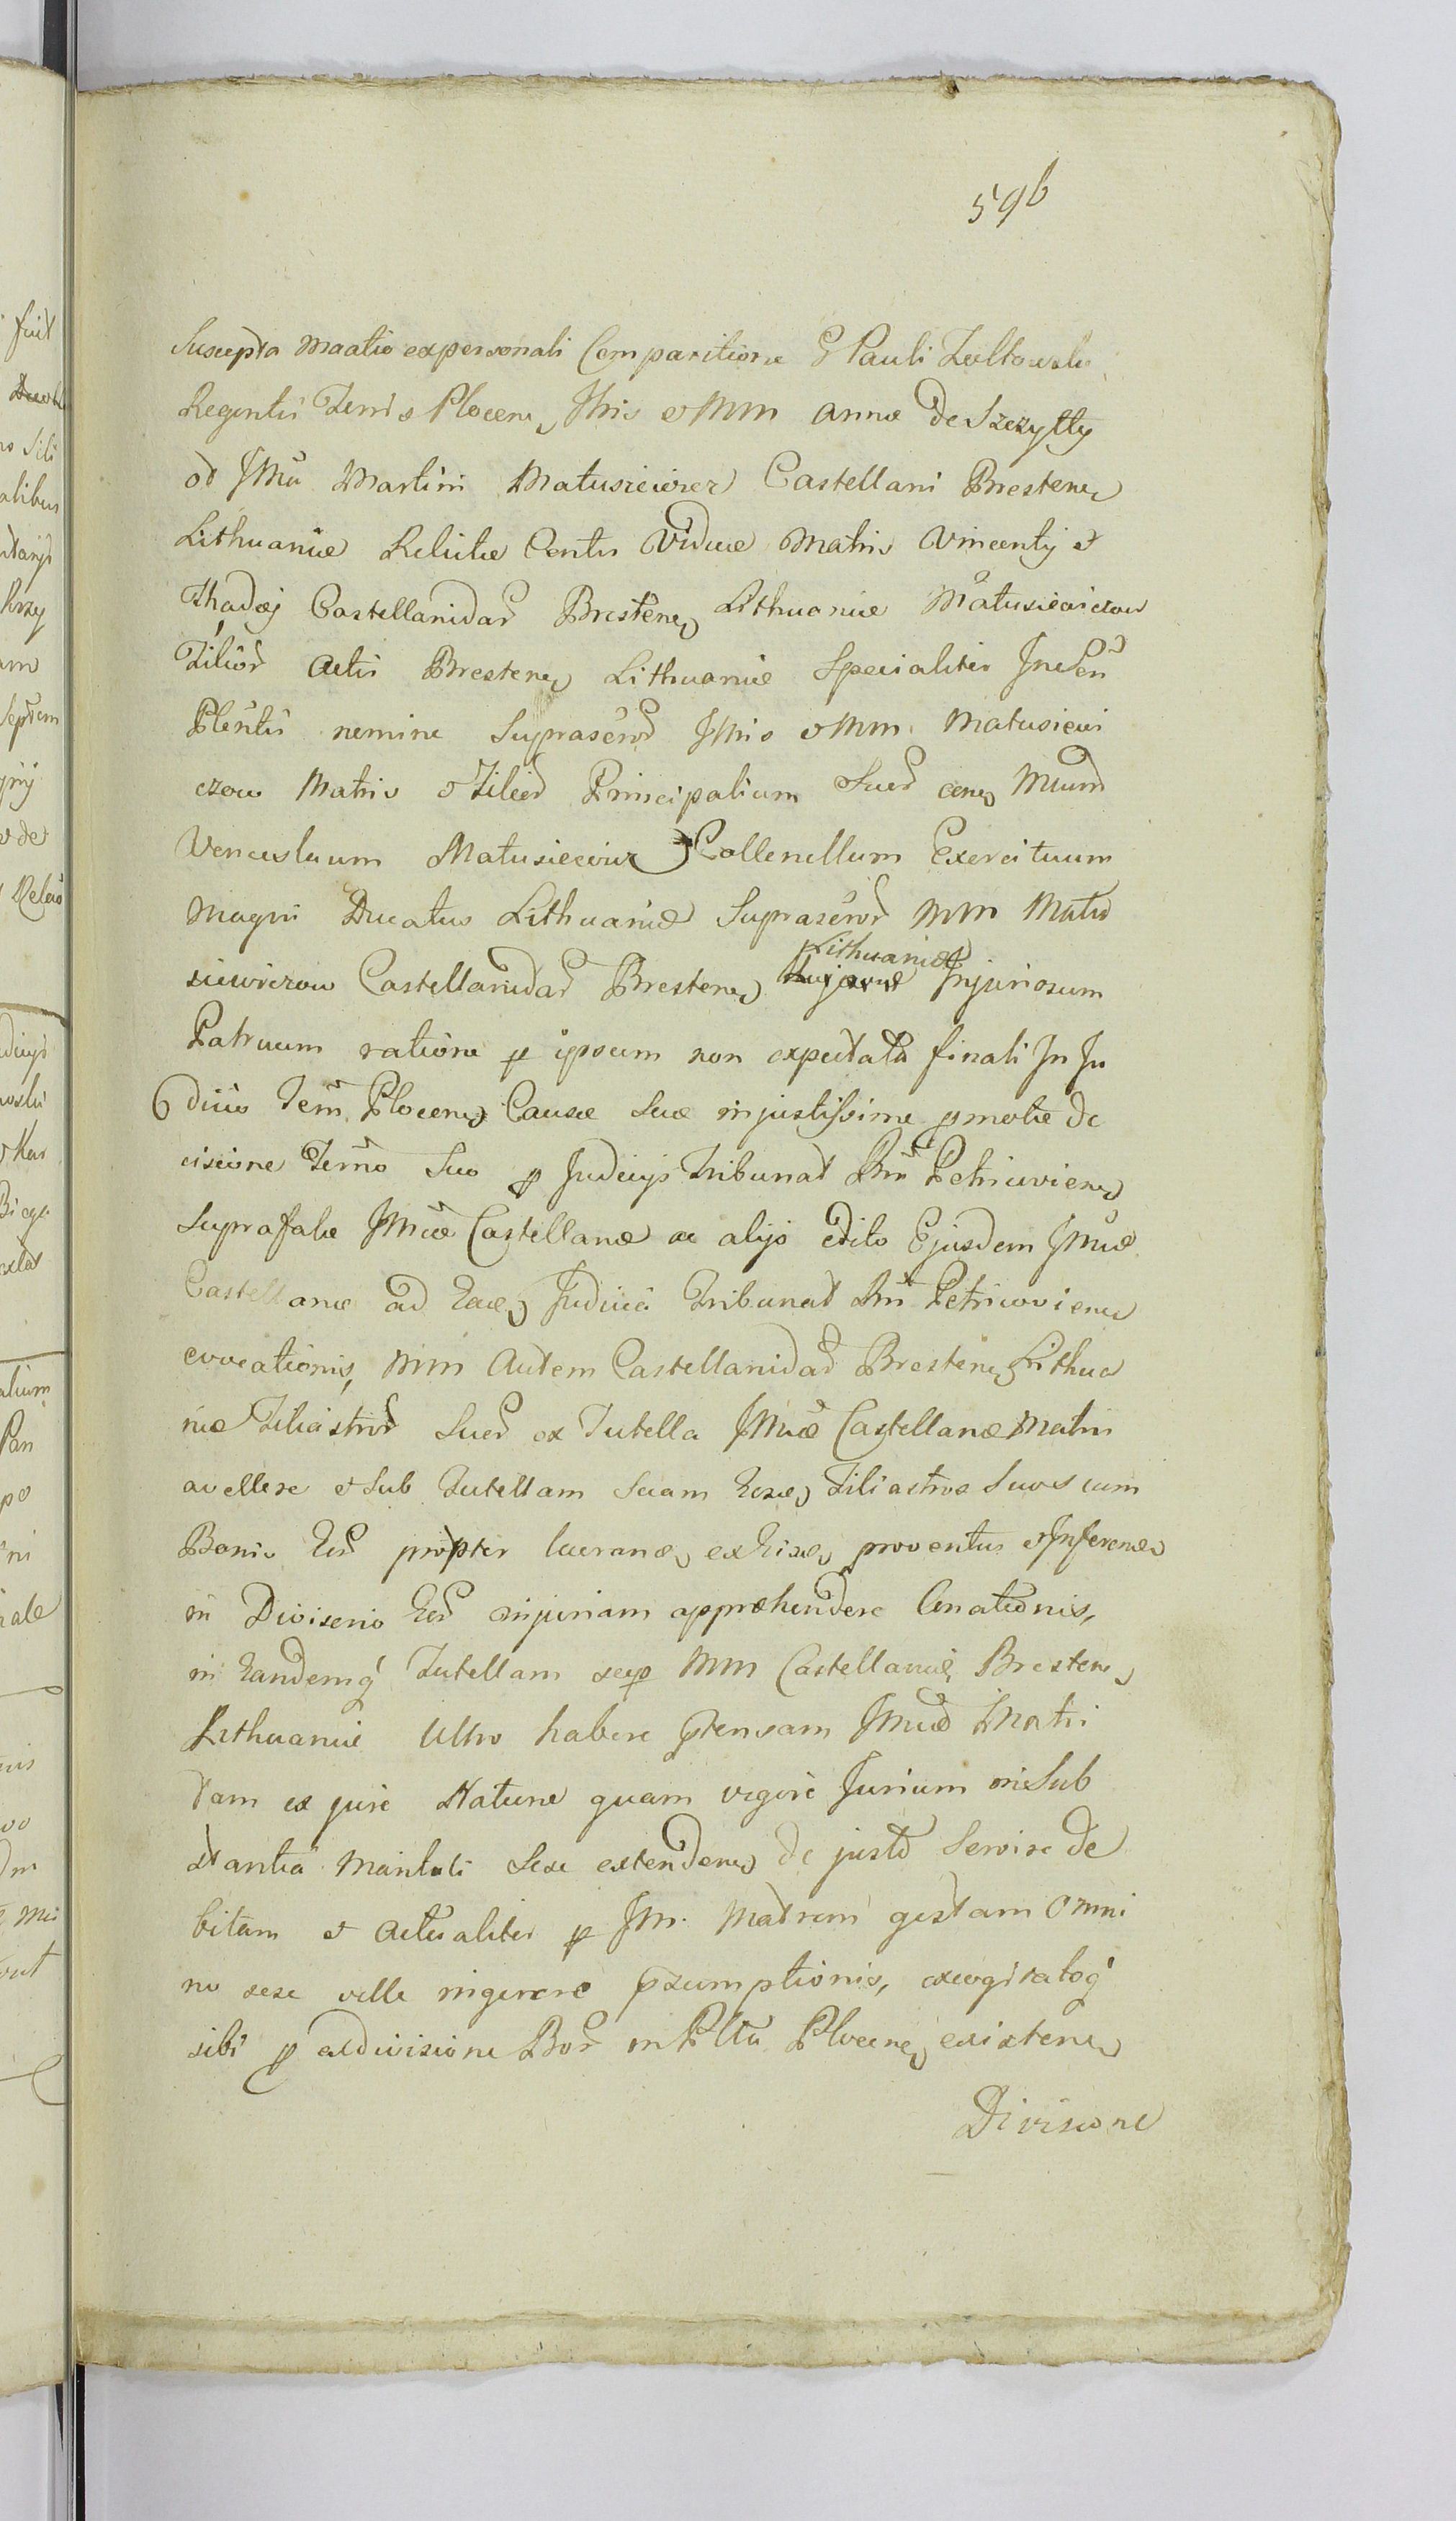 596
Suscepta Maatio ex personali Comparitione G Pauli Zoltowski
Regentis Terris Plocen, Jllris et Mm Annæ de Szczytty
od JMci Martini Matusiewicz Castellani Bresten,
Lithuaniæ Relictæ Contis Viduæ Matris Vincentij et
Thadæj Castellanidar Bresten, Lithuaniæ Matusiewiczow
Filior Actis Bresten, Lithuaniæ Specialiter
Plentis nemine Suprascr Jllris et Mm. Matusiewi
czow Matris et Filior Principalium Suor Mcum
Venceslaum Matusiewicz Collenellum Exercituum
Magni Ducatus Lithuaniæ Suprascr Mm Matu
siewiczow Castellanidar Bresten, Lithuaniæ Injuriosum
Patruum ratione p ipsum non expectata finali In Ju
dicio Terr Plocen, Causæ suæ injustissime pmotæ de
cisione Termo Suo p Judicijs Tribunal Rni Petricovien,
Suprafatæ JMcæ Castellanæ ac alijs edito Ejusdem JMcæ
Castellanæ ad Ead, Judicia Tribunal Rni Petricovien,
evocationis, Mm Autem Castellanidar Bresten, Lithua
niæ Filiastror Suor ex Tutella JMcæ Castellanæ Matris
avellere et Sub Tutellam Suam Eosd, Filiastros Suos cum
Bonis Eor propter lucrand, ex Eisd, proventus et Inferend,
in Divisorio Eor injuriam apprehendere Conationis,
in Eandemq Tutellam sep Mm Castellanid, Bresten,
Lithuaniæ Ultro habere ptensam JMcæ Matri
tam ex jure Naturæ quam vigore Jurium in Sub
stantia Mariti Sese extenden, de justo Servire de
bitam et Actualiter p JM. Matrem gestam Omni
no sese velle ingerere psumptionis, excogitatoq
sibi p ex divisione Bor in Pltu Plocen, existen,
Divisione